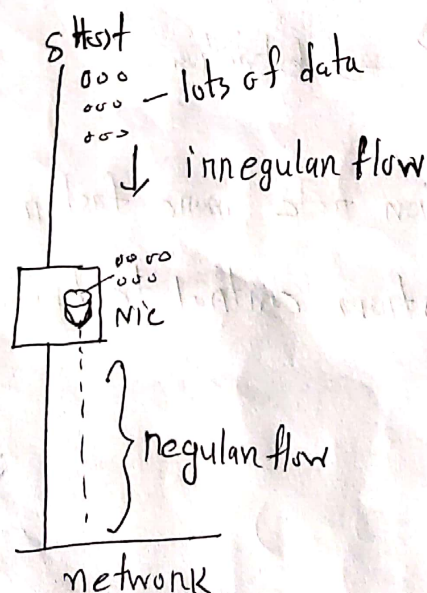 Host
lots of data
irregular flow
NIC
regular flow
network